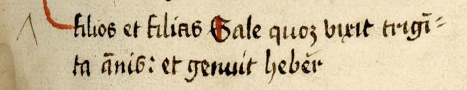 filios et filias Sale quoꝫ vixit trigī⸗
ta ānis: et genuit heber